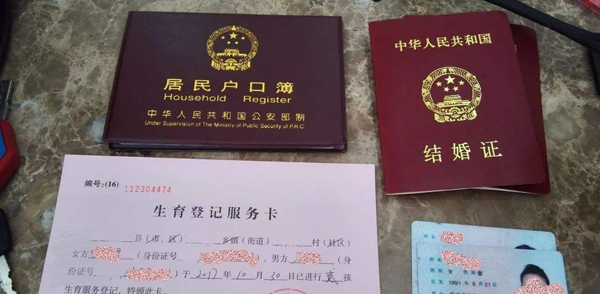 居民户口簿
Household Register
中华人民共和国公安部制
Under Supervision of The Ministry of Public Security of P.R.C.
中华人民共和国
结婚证
编号:(16) 112304474
生育登记服务卡
县(市、区) 乡镇(街道) 村(社区)
女方 (身份证号 )、男方 (身
份证号 )于2017年10月30日已进行 孩
生育服务登记,特颁此卡。